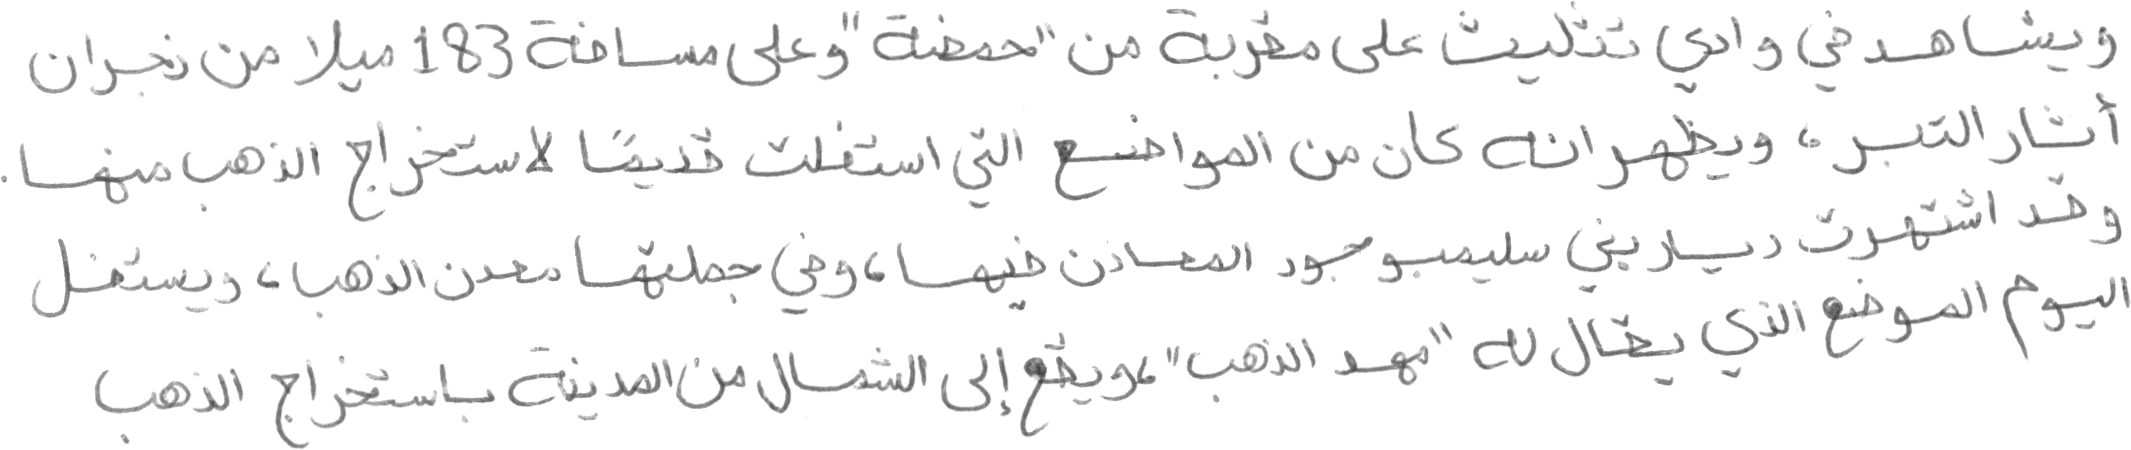 ويشاهد في وادي تثليث على مقربة من "حمضة" وعلى مسافة 183 ميلا من نجران
أثار التبر، ويظهر انه كان من المواضع التي استغلت قديمًا لاستخراج الذهب منها.
وقد اشتهرت ديار بني سليم بوجود المعادن فيها، وفي جملتها معدن الذهب، ويستغل
اليوم الموضع الذي يقال له "مهد الذهب"، ويقع إلى الشمال من المدينة باستخراج الذهب